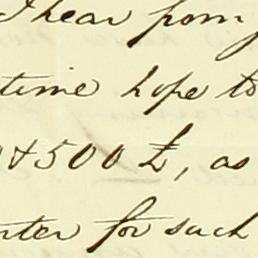 I hear from
time hope to
500 £, as
for such